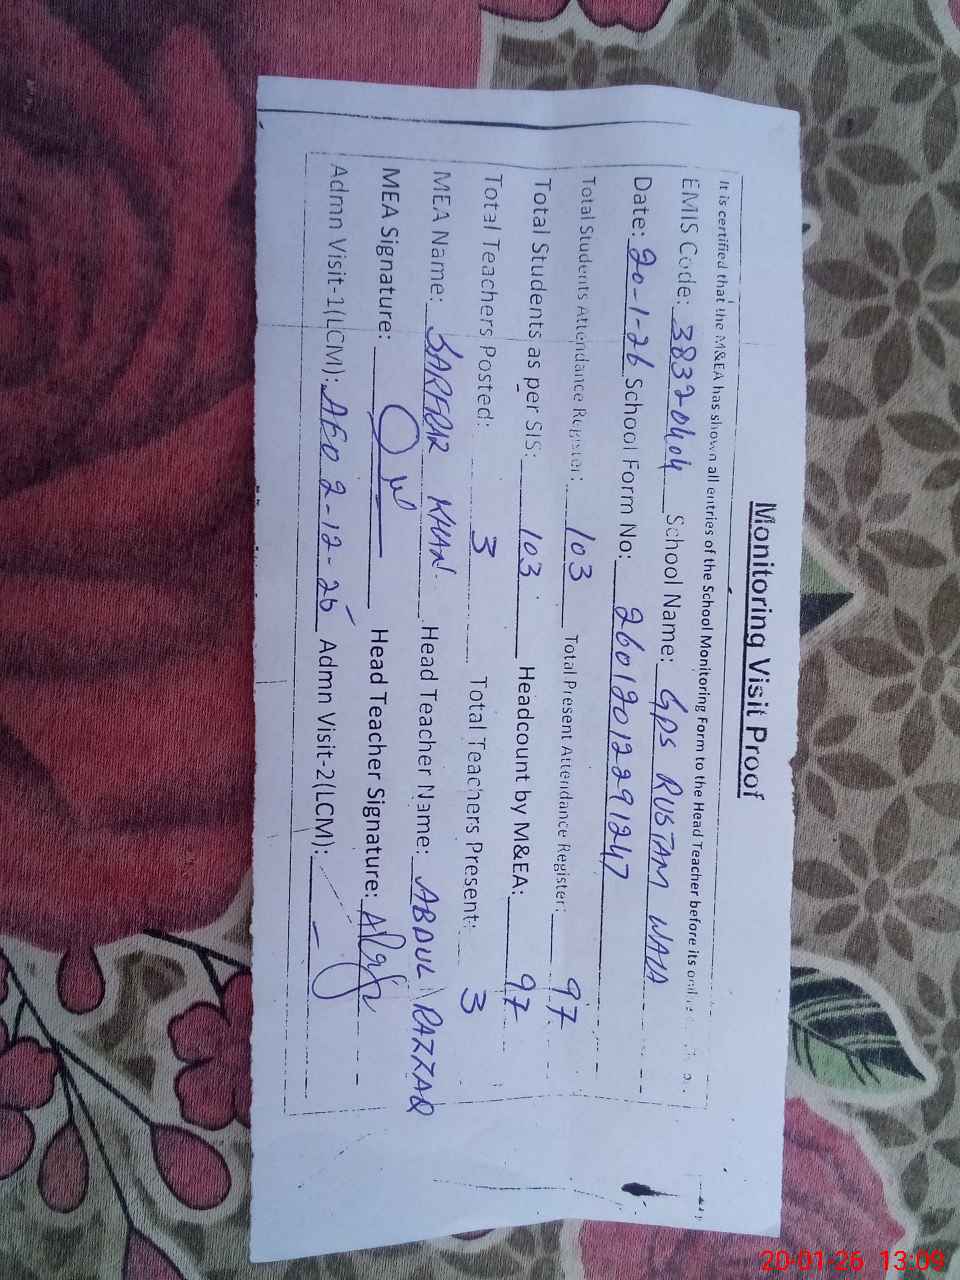 Monitoring Visit Proof
It is certified that the M&EA has shown all entries of the School Monitoring Form to the Head Teacher before its
EMIS Code: 38320404 School Name: GPS RUSTAM WALA
Date: 20-1-26 School Form No: 260120122291247
Total Students Attendance Register: 103 Total Present Attendance Register: 97
Total Students as per SIS: 103 Headcount by M&EA: 97
Total Teachers Posted: 3 Total Teachers Present: 3
MEA Name: SARFRAZ KHAN Head Teacher Name: ABDUL RAZZAQ
MEA Signature: Head Teacher Signature:
Admn Visit-1(LCM): AEO 2-12-25 Admn Visit-2(LCM): —
20-01-26 13:09